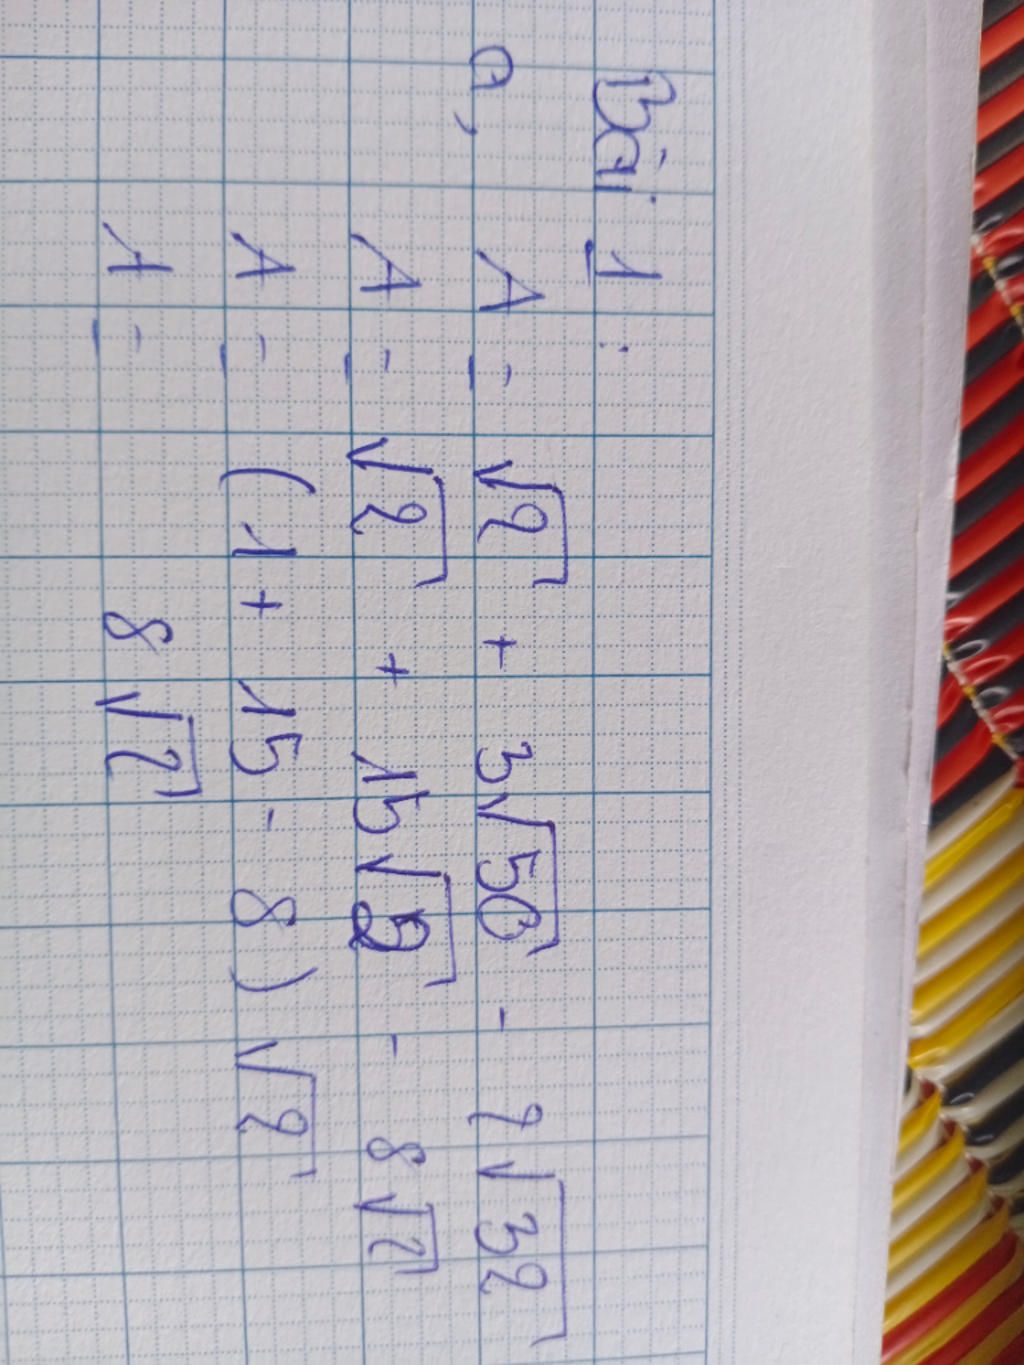 Bài 1:
a, A = √2 + 3√50 - 2√32
A = √2 + 15√2 - 8√2
A = (1 + 15 - 8) √2
A = 8√2